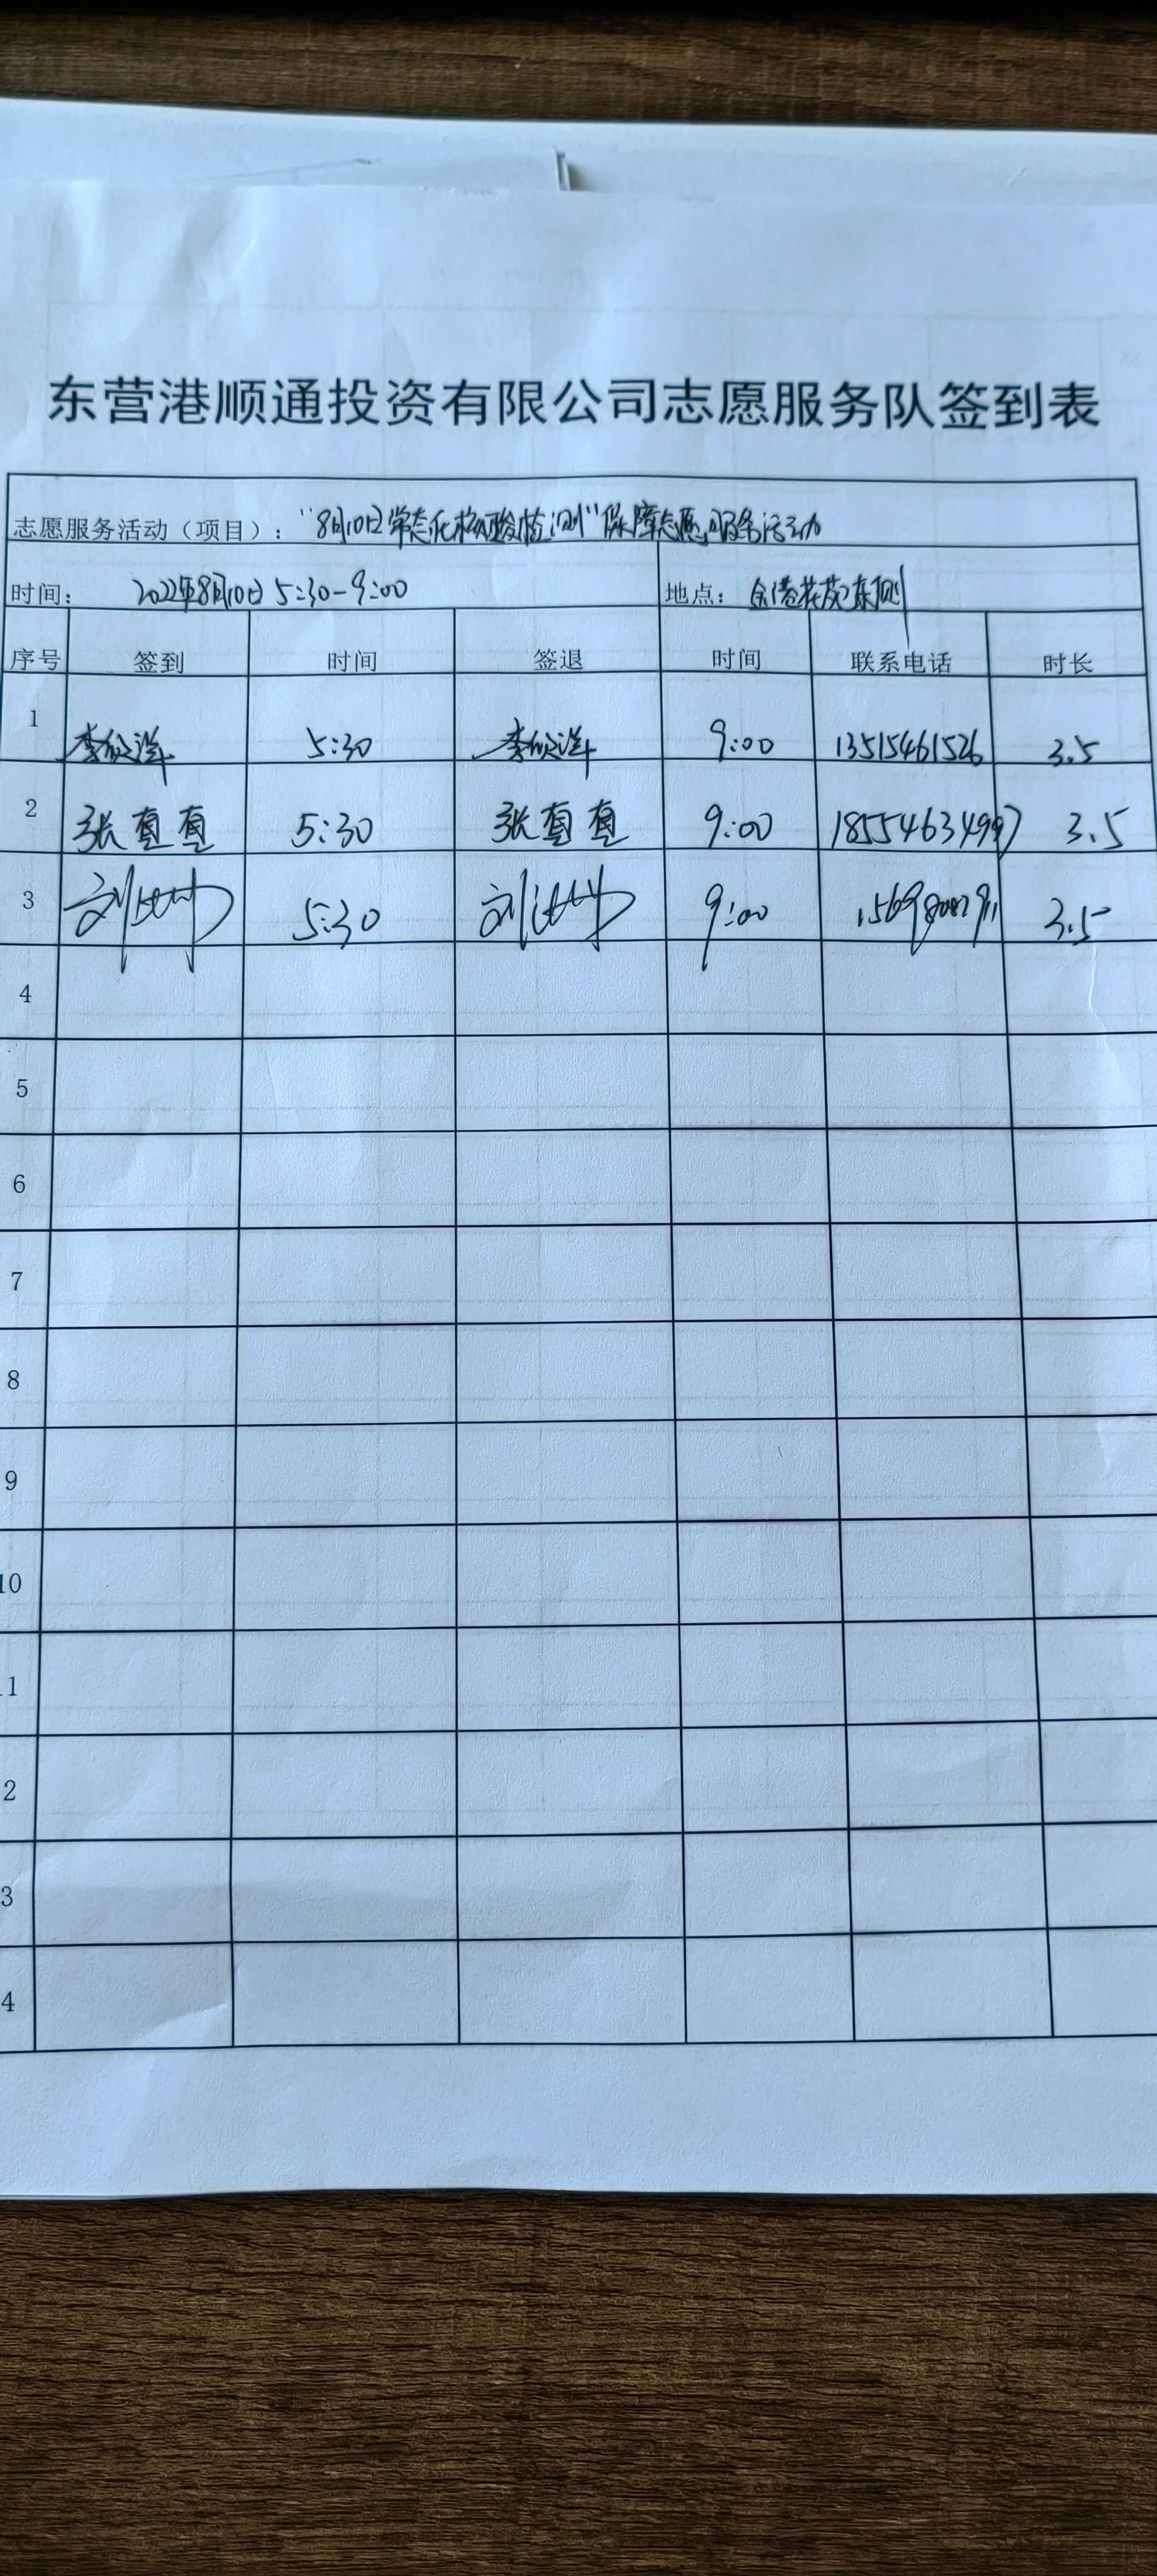 东营港顺通投资有限公司志愿服务队签到表
志愿服务活动（项目）："8月10日常态化核酸检测"保障志愿服务活动
时间： 2022年8月10日 5:30-9:00 地点：金港花苑东侧
序号 签到 时间 签退 时间 联系电话 时长
1 李欣洋 5:30 李欣洋 9:00 13515461526 3.5
2 张直直 5:30 张直直 9:00 18554634997 3.5
3 刘 5:30 刘 9:00 3.5
4
5
6
7
8
9
10
1
2
3
4